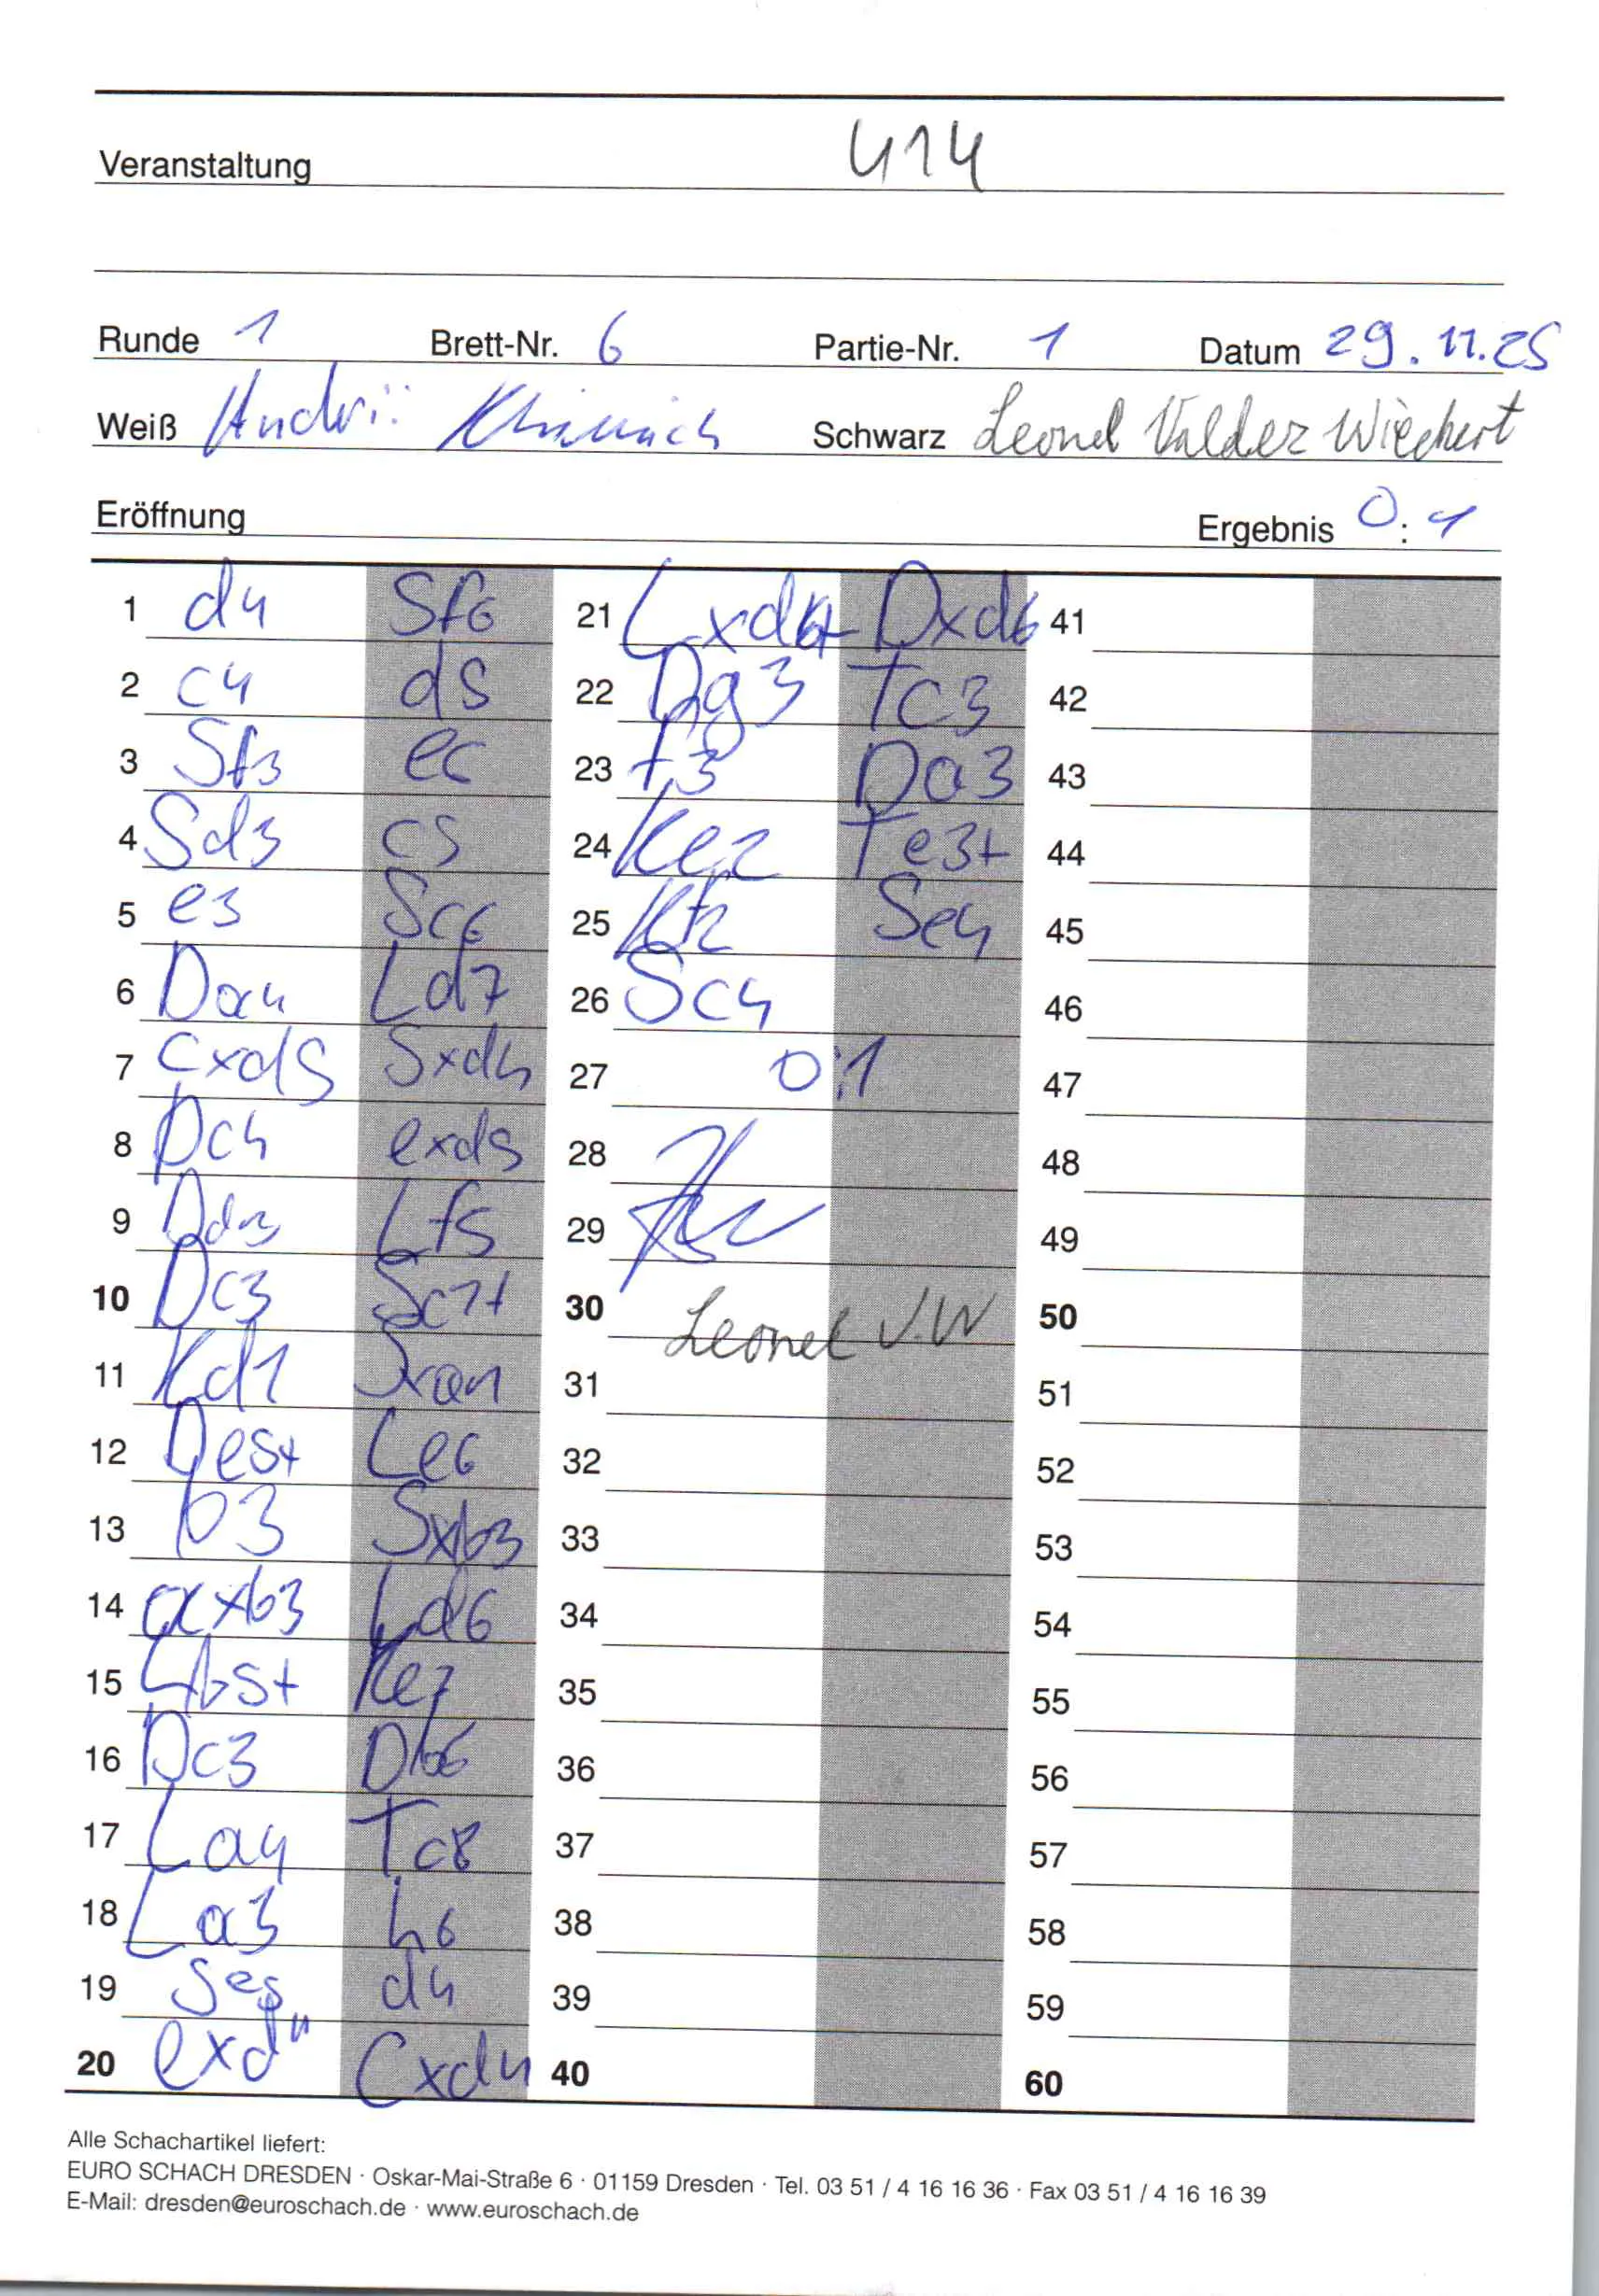 Veranstaltung U14
Runde 1 Brett-Nr. 6 Partie-Nr. 1 Datum 29.11.25
Weiß Andrii Schwarz Leonel Valdez Wiechert
Eröffnung Ergebnis 0:1
1 d4 Sf6
2 c4 d5
3 Sf3 e6
4 Sd3 c5
5 e3 Sc6
6 Da4 Ld7
7 cxd5 Sxd4
8 Dc4 exd5
9 Dd3 Lf5
10 Dc3 Sc2+
11 Kd1 Sxa1
12 De5+ Le6
13 b3 Sxb3
14 axb3 Ld6
15 Lb5+ Ke7
16 Dc3 Db6
17 La4 Tc8
18 La3 h6
19 Se5 d4
20 exd4 Cxd4
21 Lxd6+ Dxd6
22 Dg3 Tc3
23 f3 Da3
24 Ke2 Te3+
25 Kf2 Se4
26 Sc4
27 0:1
28
29
30 Leonel V.W
31
32
33
34
35
36
37
38
39
40
41
42
43
44
45
46
47
48
49
50
51
52
53
54
55
56
57
58
59
60
Alle Schachartikel liefert:
EURO SCHACH DRESDEN · Oskar-Mai-Straße 6 · 01159 Dresden · Tel. 03 51 / 4 16 16 36 · Fax 03 51 / 4 16 16 39
E-Mail: dresden@euroschach.de · www.euroschach.de